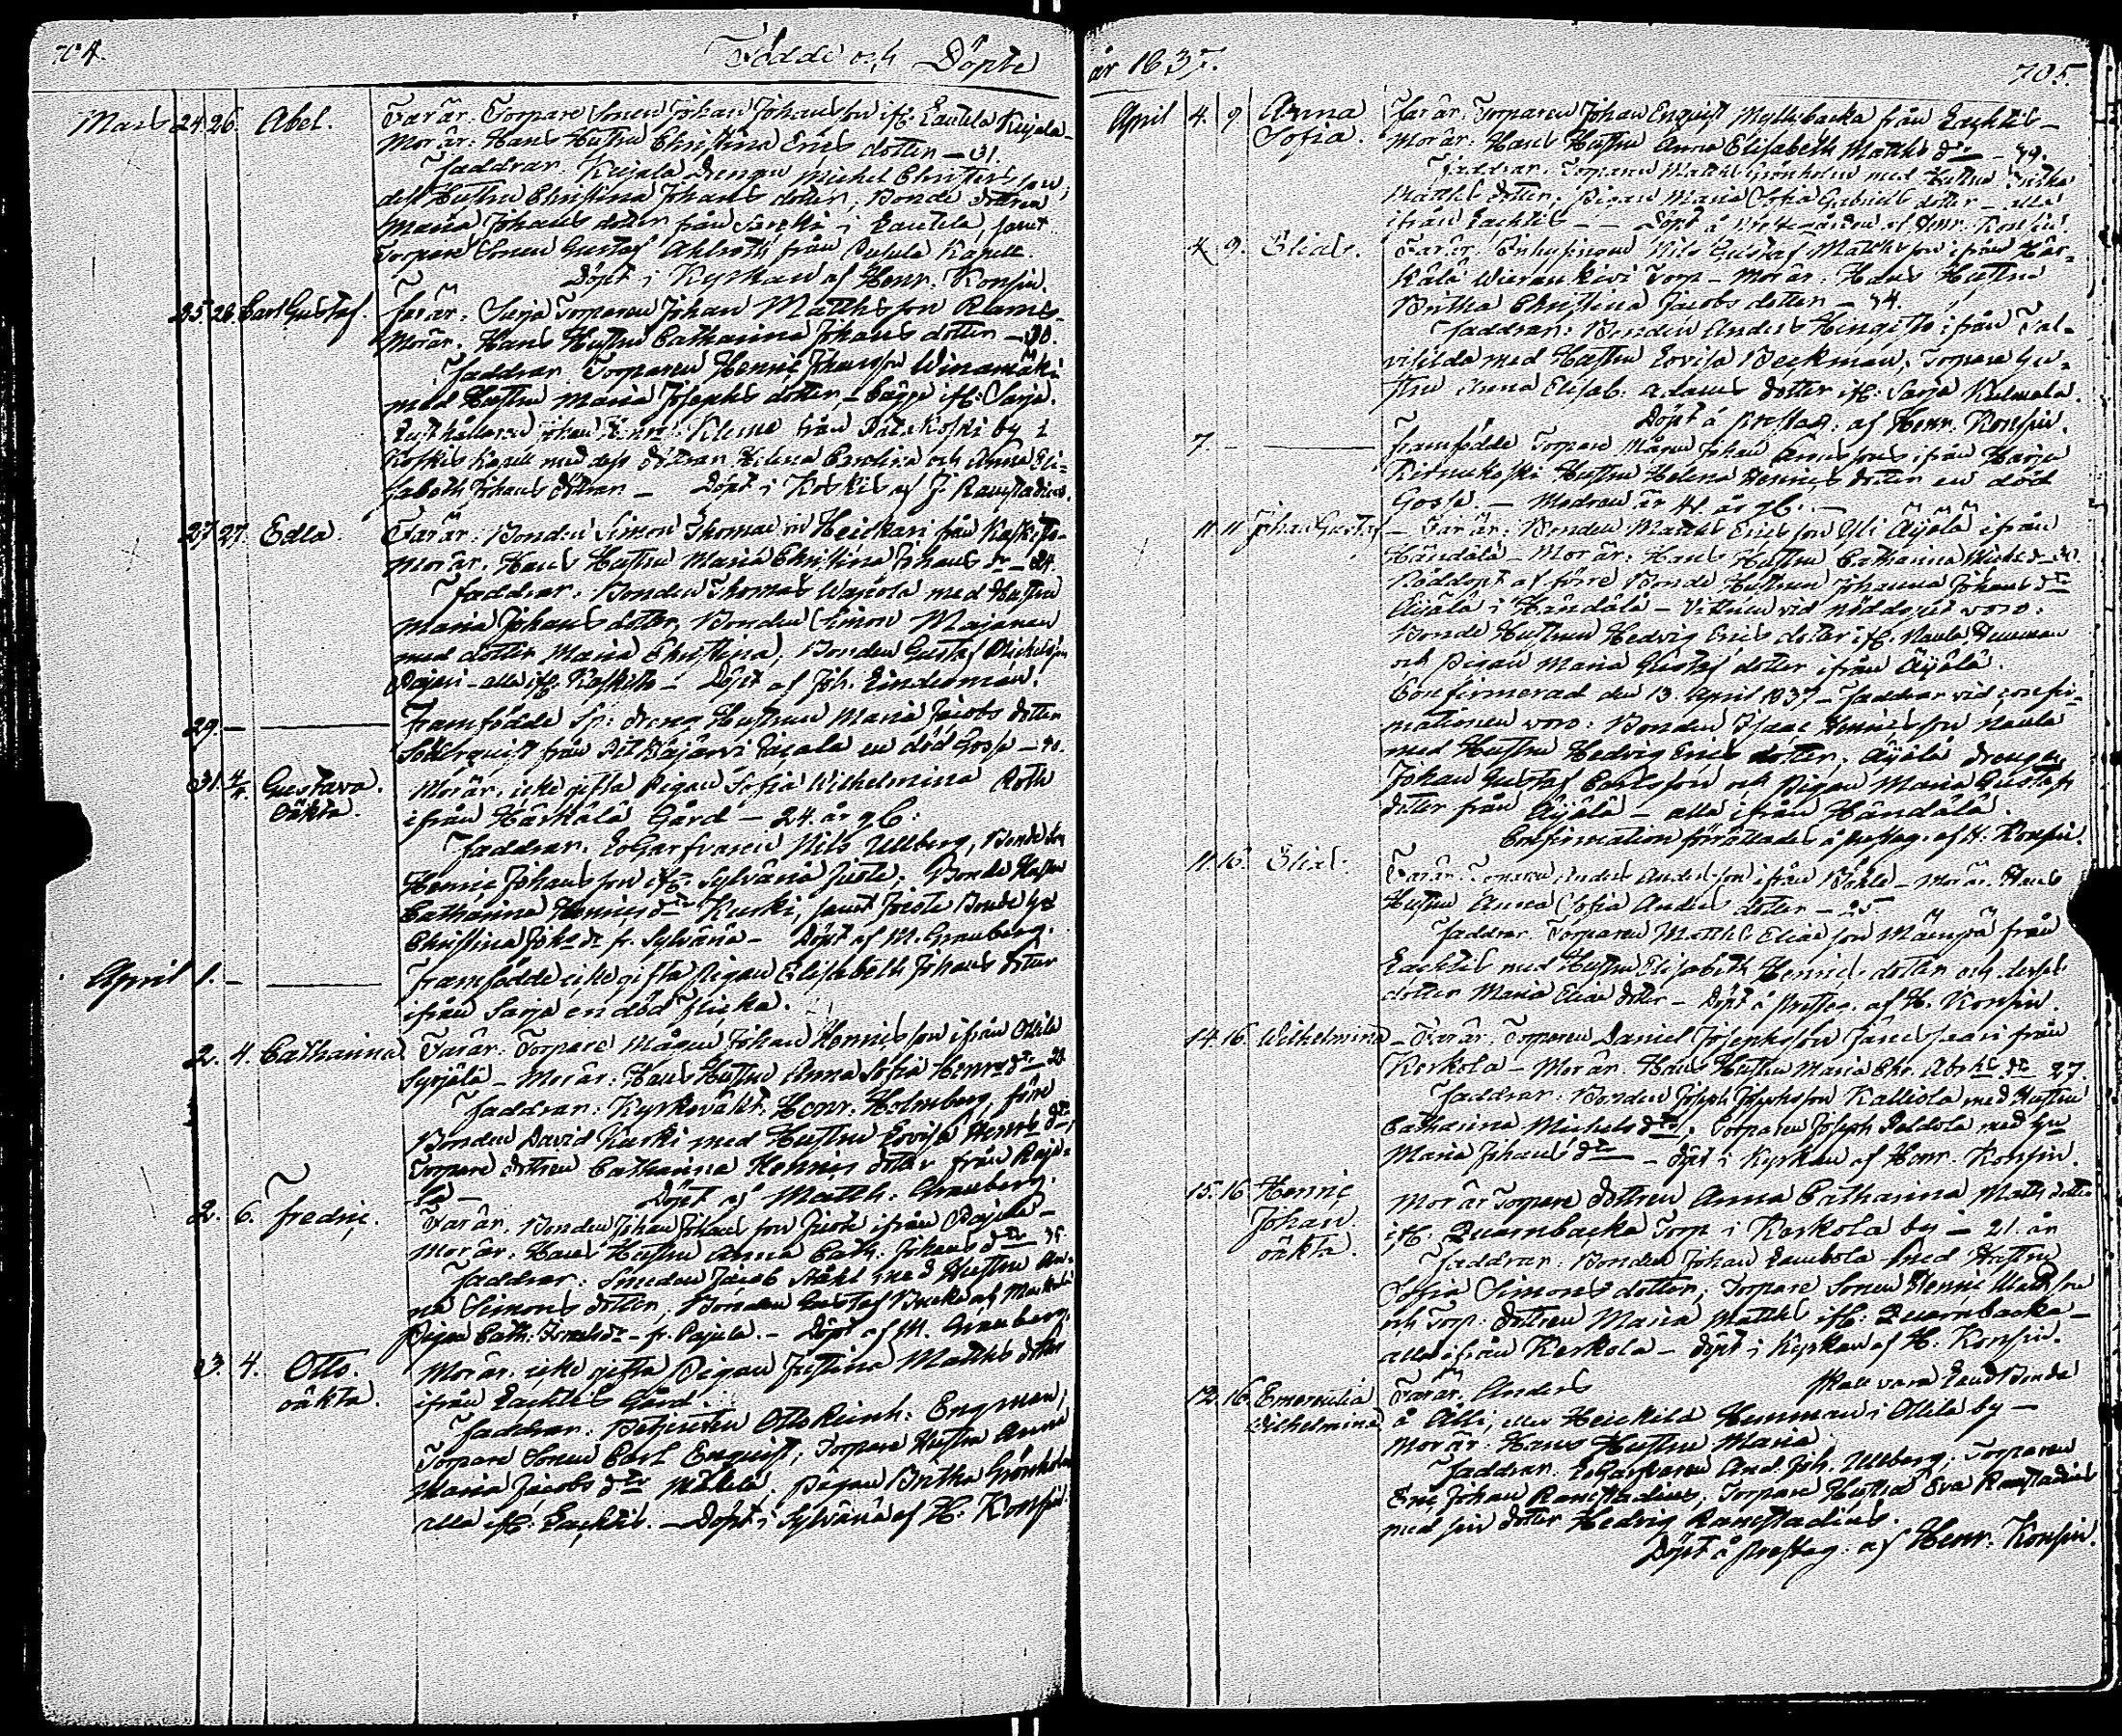 704. Födde och Döpte
Mars 24. 26. Abel. Far är: Torpare Sonen Johan Johansson ifr: Lautela Kujala
Mor är: Hans Hustru Christina Erics dotter - 31.
Faddrar. Kujala Drengen Michel Christersson,
dess Hustru Christina Johans dotter, Bonde dottren
Maria Johans dotter från i Lautela, samt
Torpare Sonen Gustaf Ahlroth från Kapell.
Döpt i Kyrkan af Henr. Konsin.
25. 26. Carl Gustaf. Far är: Sarja Torparen Johan Matthsson Rams
Mor är. Hans Hustru Catharina Johans dotter - 30.
Faddrar. Torparen Henric Johansson Winamäki
med Hustru Maria Josephs dotter, - bägge ifr: Sarja.
Rusthållaren Johan Kleme från by i
Koskis Kapell med dess döttrar Helena Carolina och Anna Eli-
sabeth Johans döttrar - Döpt i Koskis af J. Ramstadius.
27. 27. Edla. Far är: Bonden Simon Thomasson Heickari från Koskisto
Mor är. Hans Hustru Maria Christina Johans dr - 24.
Faddrar: Bonden Thomas med Hustru
Maria Johans dotter, Bonden Simon Majanen
med dotter Maria Christina; Bonden Gustaf Michelsson
Pajari - alla ifr. Koskisto - Döpt af Joh. Lindeman.
29. - Framfödde Sp: dreng Hustrun Maria Jacobs dotter
Söderquist från Pajala en död Gosse - 40.
31. 4/4. Gustava. oäkta. Mor är. icke gifta Pigan Sofia Wilhelmina Roth
ifrån Härkälä Gård - 24. år gl:
Faddrar. Nils Ullberg, Bonde Son
Henric Johansson ifr: Sylvänä Juote; Bonde Hustru
Catharina Henricsdr Kurski, samt Juote Bonde
Christina Johs dr fr. Sylvänä - Döpt af M. Granberg.
April 1. - Framfödde icke gifta pigan Elisabeth Johans dotter
ifrån Sarja en död flicka.
2. 4. Catharina Far är: Torpare Mågen Johan Henricsson ifrån Ollila
Syrjälä - Mor är: Hans Hustru Anna Sofia Henrs dr - 28.
Faddrar: Kyrkovakt: Henr: Holmberg, förre
Bonden David Kurki med Hustru Lovisa Henrs dr,
Torpare dottren Catharina Henrics dotter från Paju-
la - Döpt af Matth: Granberg.
2. 6. Fredric. Far är. Bonden Johan Johansson Juote ifrån Pajula -
Mor är: Hans Hustru Anna Cath: Johans dr - 35.
Faddrar: Smeden Jacob Ståhl med Hustru An-
na Simons dotter, Bonden Gustaf
Pigan Cath: dr - fr. Pajula. - Döpt af M. Granberg.
3. 4. Otto. oäkta. Mor är. icke gifta Pigan Justina Matths dotter
ifrån Lachtis Gård.
Faddrar. Betjenten Otto Reinh: Engman,
Torpare Sonen Carl Enquist; Torpare Hustru Anna
Maria Jacobs dr Mäkelä. Pigan Britha Grönholm
alla ifr: Lachtis. - Döpt i Sylvänä af H. Konsin.
år 1837. 705.
April 4. 9 Anna Sofia. Far är. Torparen Johan Enquist Myllibacka från Lachtis -
Mor är: Hans Hustru Anna Elisabeth Matths dr - 39.
Faddrar. Torparen Matth Grönholm med Hustru Britha
Matths dotter; Pigan Maria Sofia Gabriels dotter - alla
ifrån Lachtis - Döpt å af Henr. Konsin.
4. 9. Elias. Far är. Inhysingen Nils Gustaf Matthsson ifrån Här-
kälä Wierankivi Torp - Mor är: Hans Hustru
Britha Christina Jacobs dotter - 34.
Faddrar: Bonden Anders Hingisto ifrån Tal-
visilda med Hustru Lovisa Beckman; Torpare Hu-
stru Anna Elisab: Adams dotter ifr: Sarja Kulmala.
Döpt å prestag: af Henr. Konsin.
7. - Framfödde Torpare Mågen Johan Ericssons ifrån Harju
Kirmukoski Hustru Helena Henrics dotter en död
Gosse. - Modren är 41. år gl. -
11. 11. Johan Gustaf - Far är: Bonden Matths Ericsson Yli Äijälä ifrån
Händälä - Mor är: Hans Hustru Catharina Michs dr 30.
Nöddöpt af förre Bonde Hustrun Johanna Johans dr
Äijälä i Händälä - Vittnen vid nöddopet voro:
Bonde Hustrun Hedvig Erics dotter ifr: Naula Hemman
och pigan Maria Gustafs dotter ifrån Äijälä.
Confirmerad den 13. April 1837 - Faddrar vid confir-
mationen voro: Bonden Isaac Henricsson Naula
med Hustru Hedvig Erics dotter, Äijälä drengen
Johan Gustaf Carlsson och Pigan Maria Gustafs
dotter från Äijälä - alla ifrån Händälä.
Confirmation förrättades å prestag. af H. Konsin.
11. 16. Elias. Far är. Torparen Anders Andersson ifrån - Mor är. Hans
Hustru Anna Sofia Anders dotter - 25.
Faddrar. Torparen Matths Eliasson Mäenpä från
Lachtis med Hustru Elisabeth Henrics dotter och deras
dotter Maria Elias dotter - Döpt å prestag. af H. Konsin.
14. 16. Wilhelmina - Far är. Torparen Daniel Josephsson Jänessaari från
Kerkola - Mor är. Hans Hustru Maria Chr. Abrhs dr 27.
Faddrar. Bonden Joseph Josephsson Kalliola med Hustru
Catharina Michels dr; Torparen Joseph Peldola med hu
Maria Johans dr - döpt i Kyrkan af Henr. Konsin.
15. 16 Henric Johan oäkta. Mor är Torpare dottren Anna Catharina Matths dotter
ifr. Quarnbacka Torp i Kerkola by - 21. år
Faddrar. Bonden Johan med Hustru
Sofia Simons dotter; Torpare Sonen Henric Matthsson
och Torp. dottren Maria Matths ifr: Quarnbacka -
alla ifrån Kerkola - döpt i Kyrkan af H. Konsin.
12. 16. Emerentia Wilhelmina Far är. Anders skall vara Bonde
å Alli, eller Heickilä Hemman i Ollila by -
Mor är: Hans Hustru Maria
Faddrar. And. Joh. Ullberg, Torparen
Eric Johan Ramstadius, Torpare Hustru Eva Ramstadius
med sin dotter Hedvig Ramstadius.
Döpt å prestag: af Henr. Konsin.